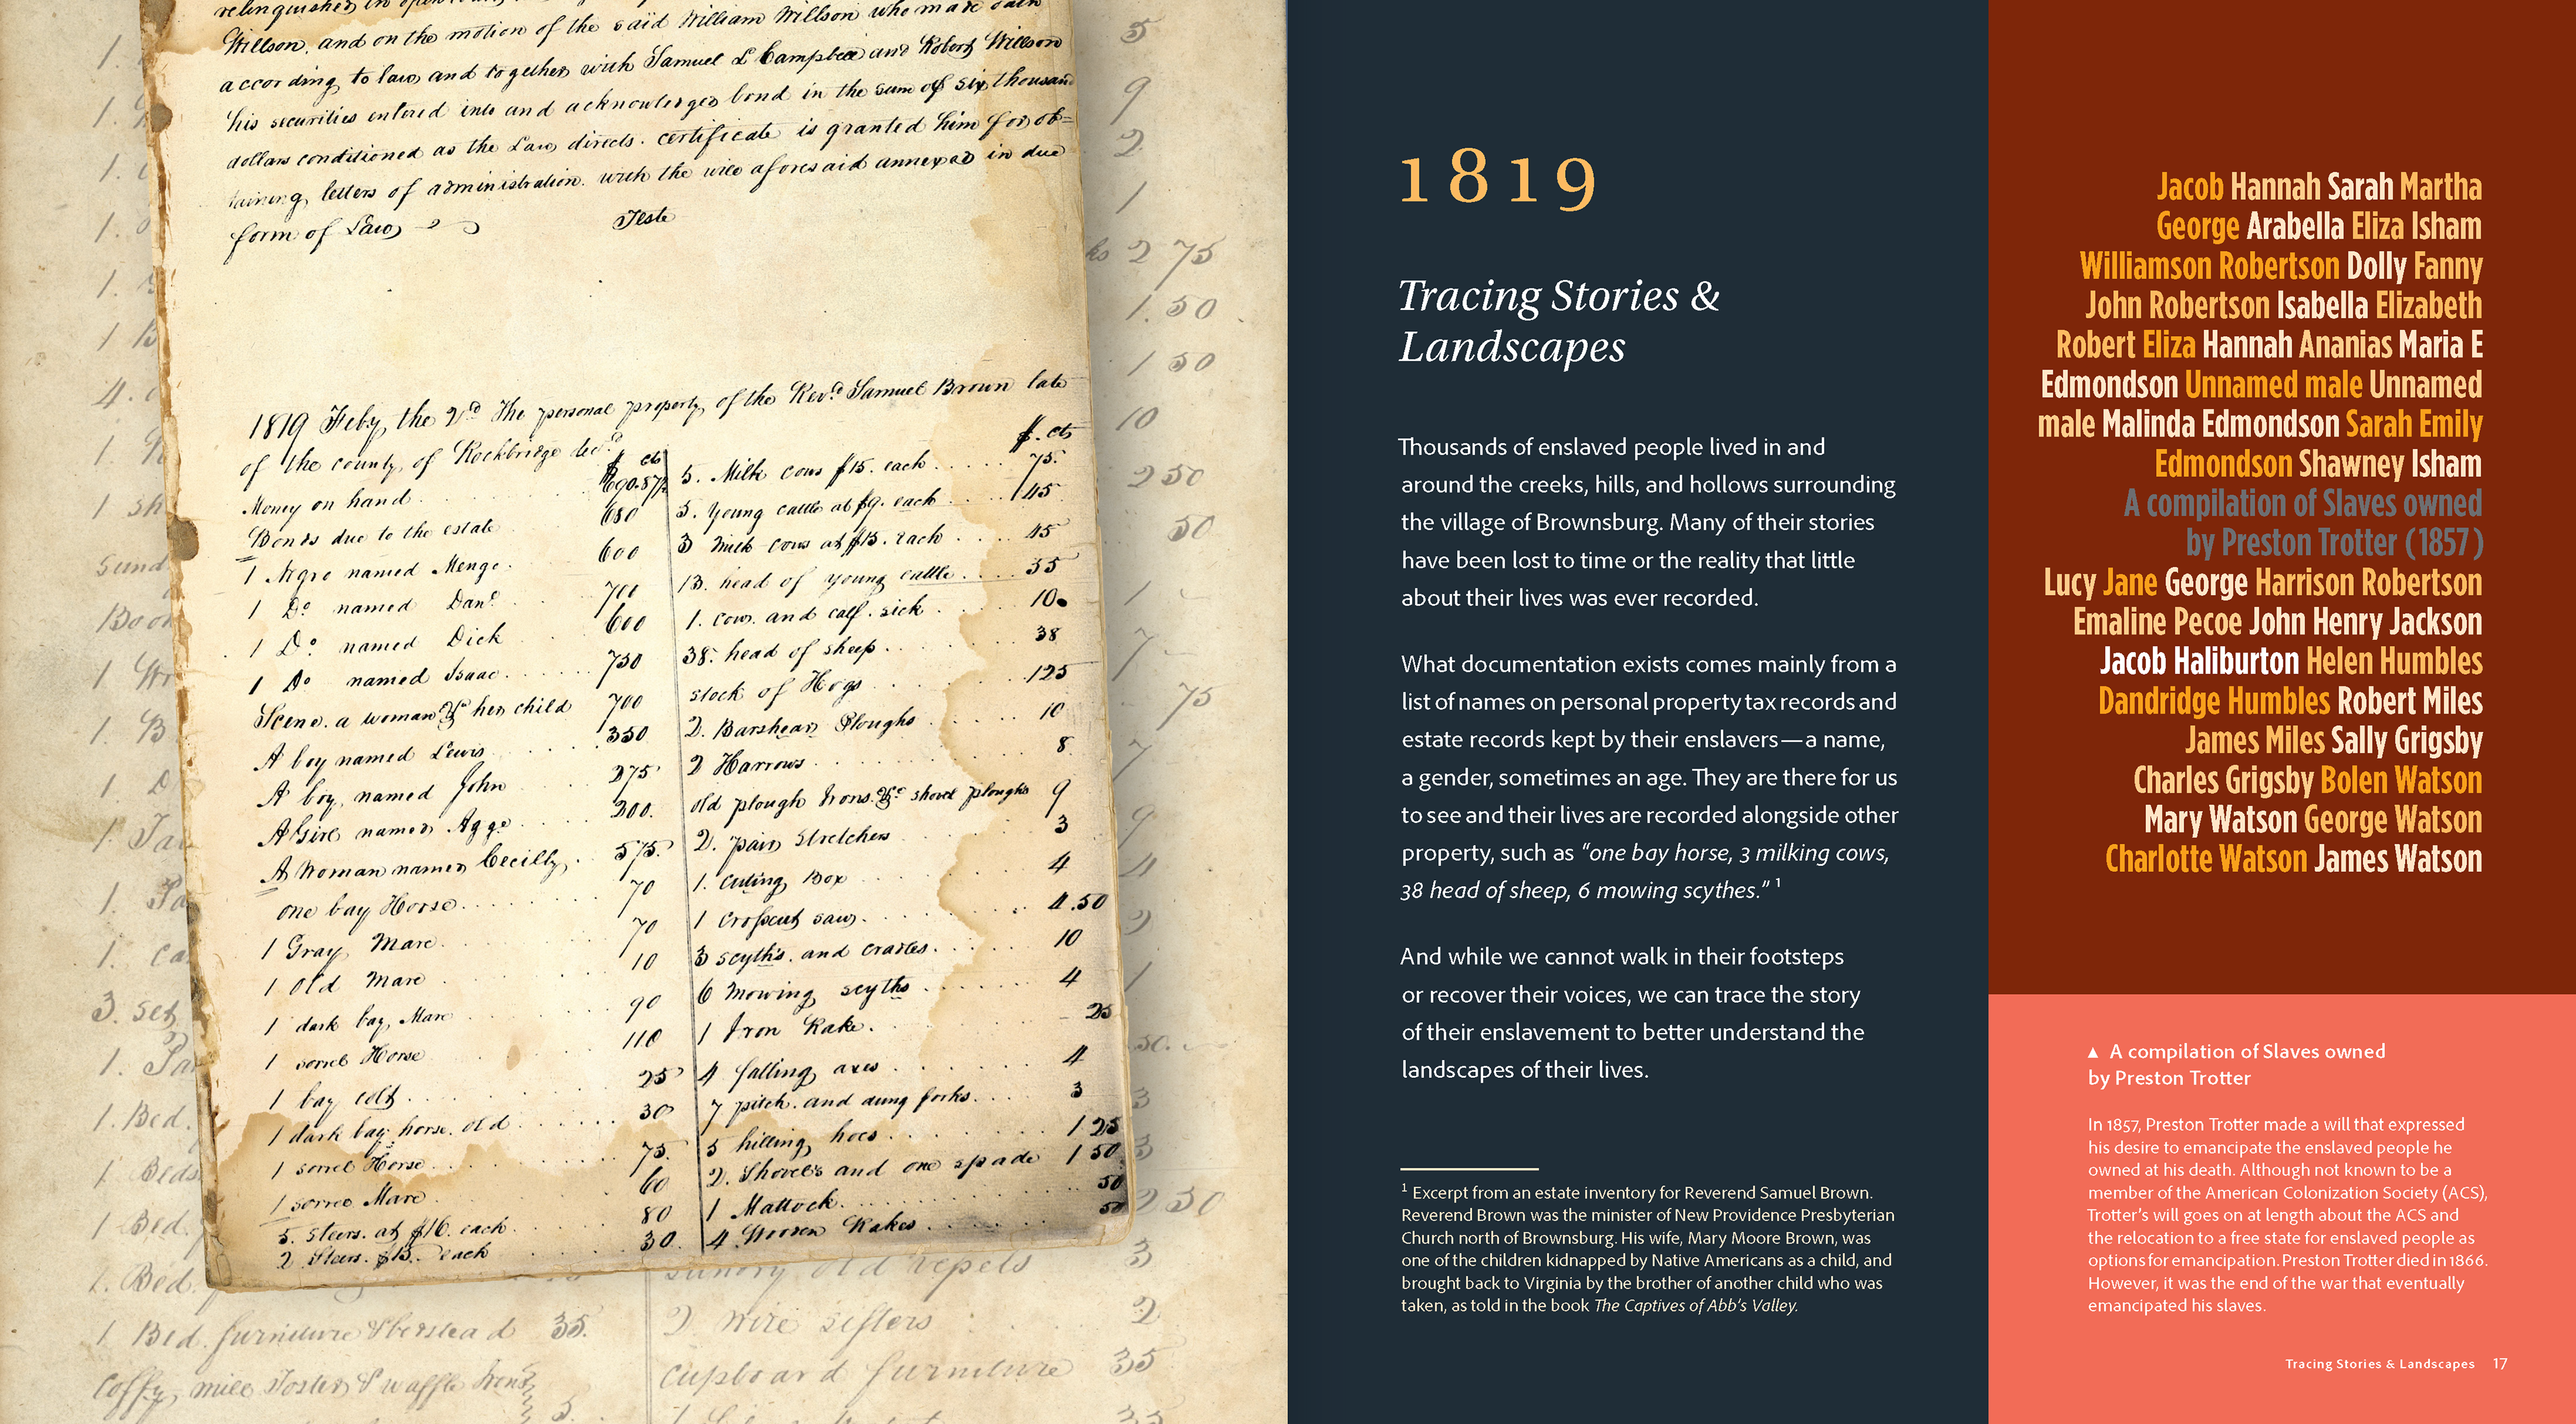 Willson. and on the motion of the said William Willson who made oath
according to law and together with Samuel L Campbell and Robert Willson
his securities entered into and acknowledged bond in the sum of six thousand
dollars conditioned as the Law directs. certificate is granted him for ob=
taining letters of administration. with the will aforesaid annexed in due
form of Law
Teste
1819 Feby the 2d The personal property of the Revd Samuel Brown late
of the county of Rockbridge decd
$ cts
Money on hand
Bonds due to the estate 680
1 Negro named Menge 600
1 Do named Danl 700
1 Do named Dick 600
1 Do named Isaac 750
a woman & her child 700
A boy named Lewis 350
A boy named John 275
A Girl named Agge 200.
A Woman named Cecilly 575.
one bay Horse 70
1 Gray Mare 70
1 Old Mare 10
1 dark bay Mare 90
1 sorrel Horse 110
1 bay colt 25
1 dark bay horse old 30
1 sorrel Horse 75.
1 sorrel Mare 60
5. Steers. at $16. each 80
2 Steers. $15. each 30.
$. cts
5. Milk cows $15. each 75.
5. young cattle at $9. each 45
3 milk cows at $15. each 45
13. head of young cattle 35
1. cow and calf. sick 10
38. head of sheep 38
stock of Hogs 125
2. Barshear Ploughs 10
2 Harrows 8
old plough Irons & shovel ploughs 9
2. pair stretchers 3
1. cuting Box 4
1 crosscut saw 4.50
3 scyths. and cradles 10
6 mowing scyths 4
1 Iron Rake 25
4 falling axes 4
7 pitch and dung forks 3
5 hilling hoes 1 25
2. Shovels and one spade 1 50
1 Mattock 50
4 Wooden Rakes 50
sundry old vepels 3
1 Bed furniture & berstead 35.
2 wire sifters 2
cupboard furniture 35
1819
Tracing Stories &
Landscapes
Thousands of enslaved people lived in and
around the creeks, hills, and hollows surrounding
the village of Brownsburg. Many of their stories
have been lost to time or the reality that little
about their lives was ever recorded.
What documentation exists comes mainly from a
list of names on personal property tax records and
estate records kept by their enslavers—a name,
a gender, sometimes an age. They are there for us
to see and their lives are recorded alongside other
property, such as “one bay horse, 3 milking cows,
38 head of sheep, 6 mowing scythes.” 1
And while we cannot walk in their footsteps
or recover their voices, we can trace the story
of their enslavement to better understand the
landscapes of their lives.
1 Excerpt from an estate inventory for Reverend Samuel Brown.
Reverend Brown was the minister of New Providence Presbyterian
Church north of Brownsburg. His wife, Mary Moore Brown, was
one of the children kidnapped by Native Americans as a child, and
brought back to Virginia by the brother of another child who was
taken, as told in the book The Captives of Abb’s Valley.
Jacob Hannah Sarah Martha
George Arabella Eliza Isham
Williamson Robertson Dolly Fanny
John Robertson Isabella Elizabeth
Robert Eliza Hannah Ananias Maria E
Edmondson Unnamed male Unnamed
male Malinda Edmondson Sarah Emily
Edmondson Shawney Isham
A compilation of Slaves owned
by Preston Trotter (1857)
Lucy Jane George Harrison Robertson
Emaline Pecoe John Henry Jackson
Jacob Haliburton Helen Humbles
Dandridge Humbles Robert Miles
James Miles Sally Grigsby
Charles Grigsby Bolen Watson
Mary Watson George Watson
Charlotte Watson James Watson
▲ A compilation of Slaves owned
by Preston Trotter
In 1857, Preston Trotter made a will that expressed
his desire to emancipate the enslaved people he
owned at his death. Although not known to be a
member of the American Colonization Society (ACS),
Trotter’s will goes on at length about the ACS and
the relocation to a free state for enslaved people as
options for emancipation. Preston Trotter died in 1866.
However, it was the end of the war that eventually
emancipated his slaves.
Tracing Stories & Landscapes 17